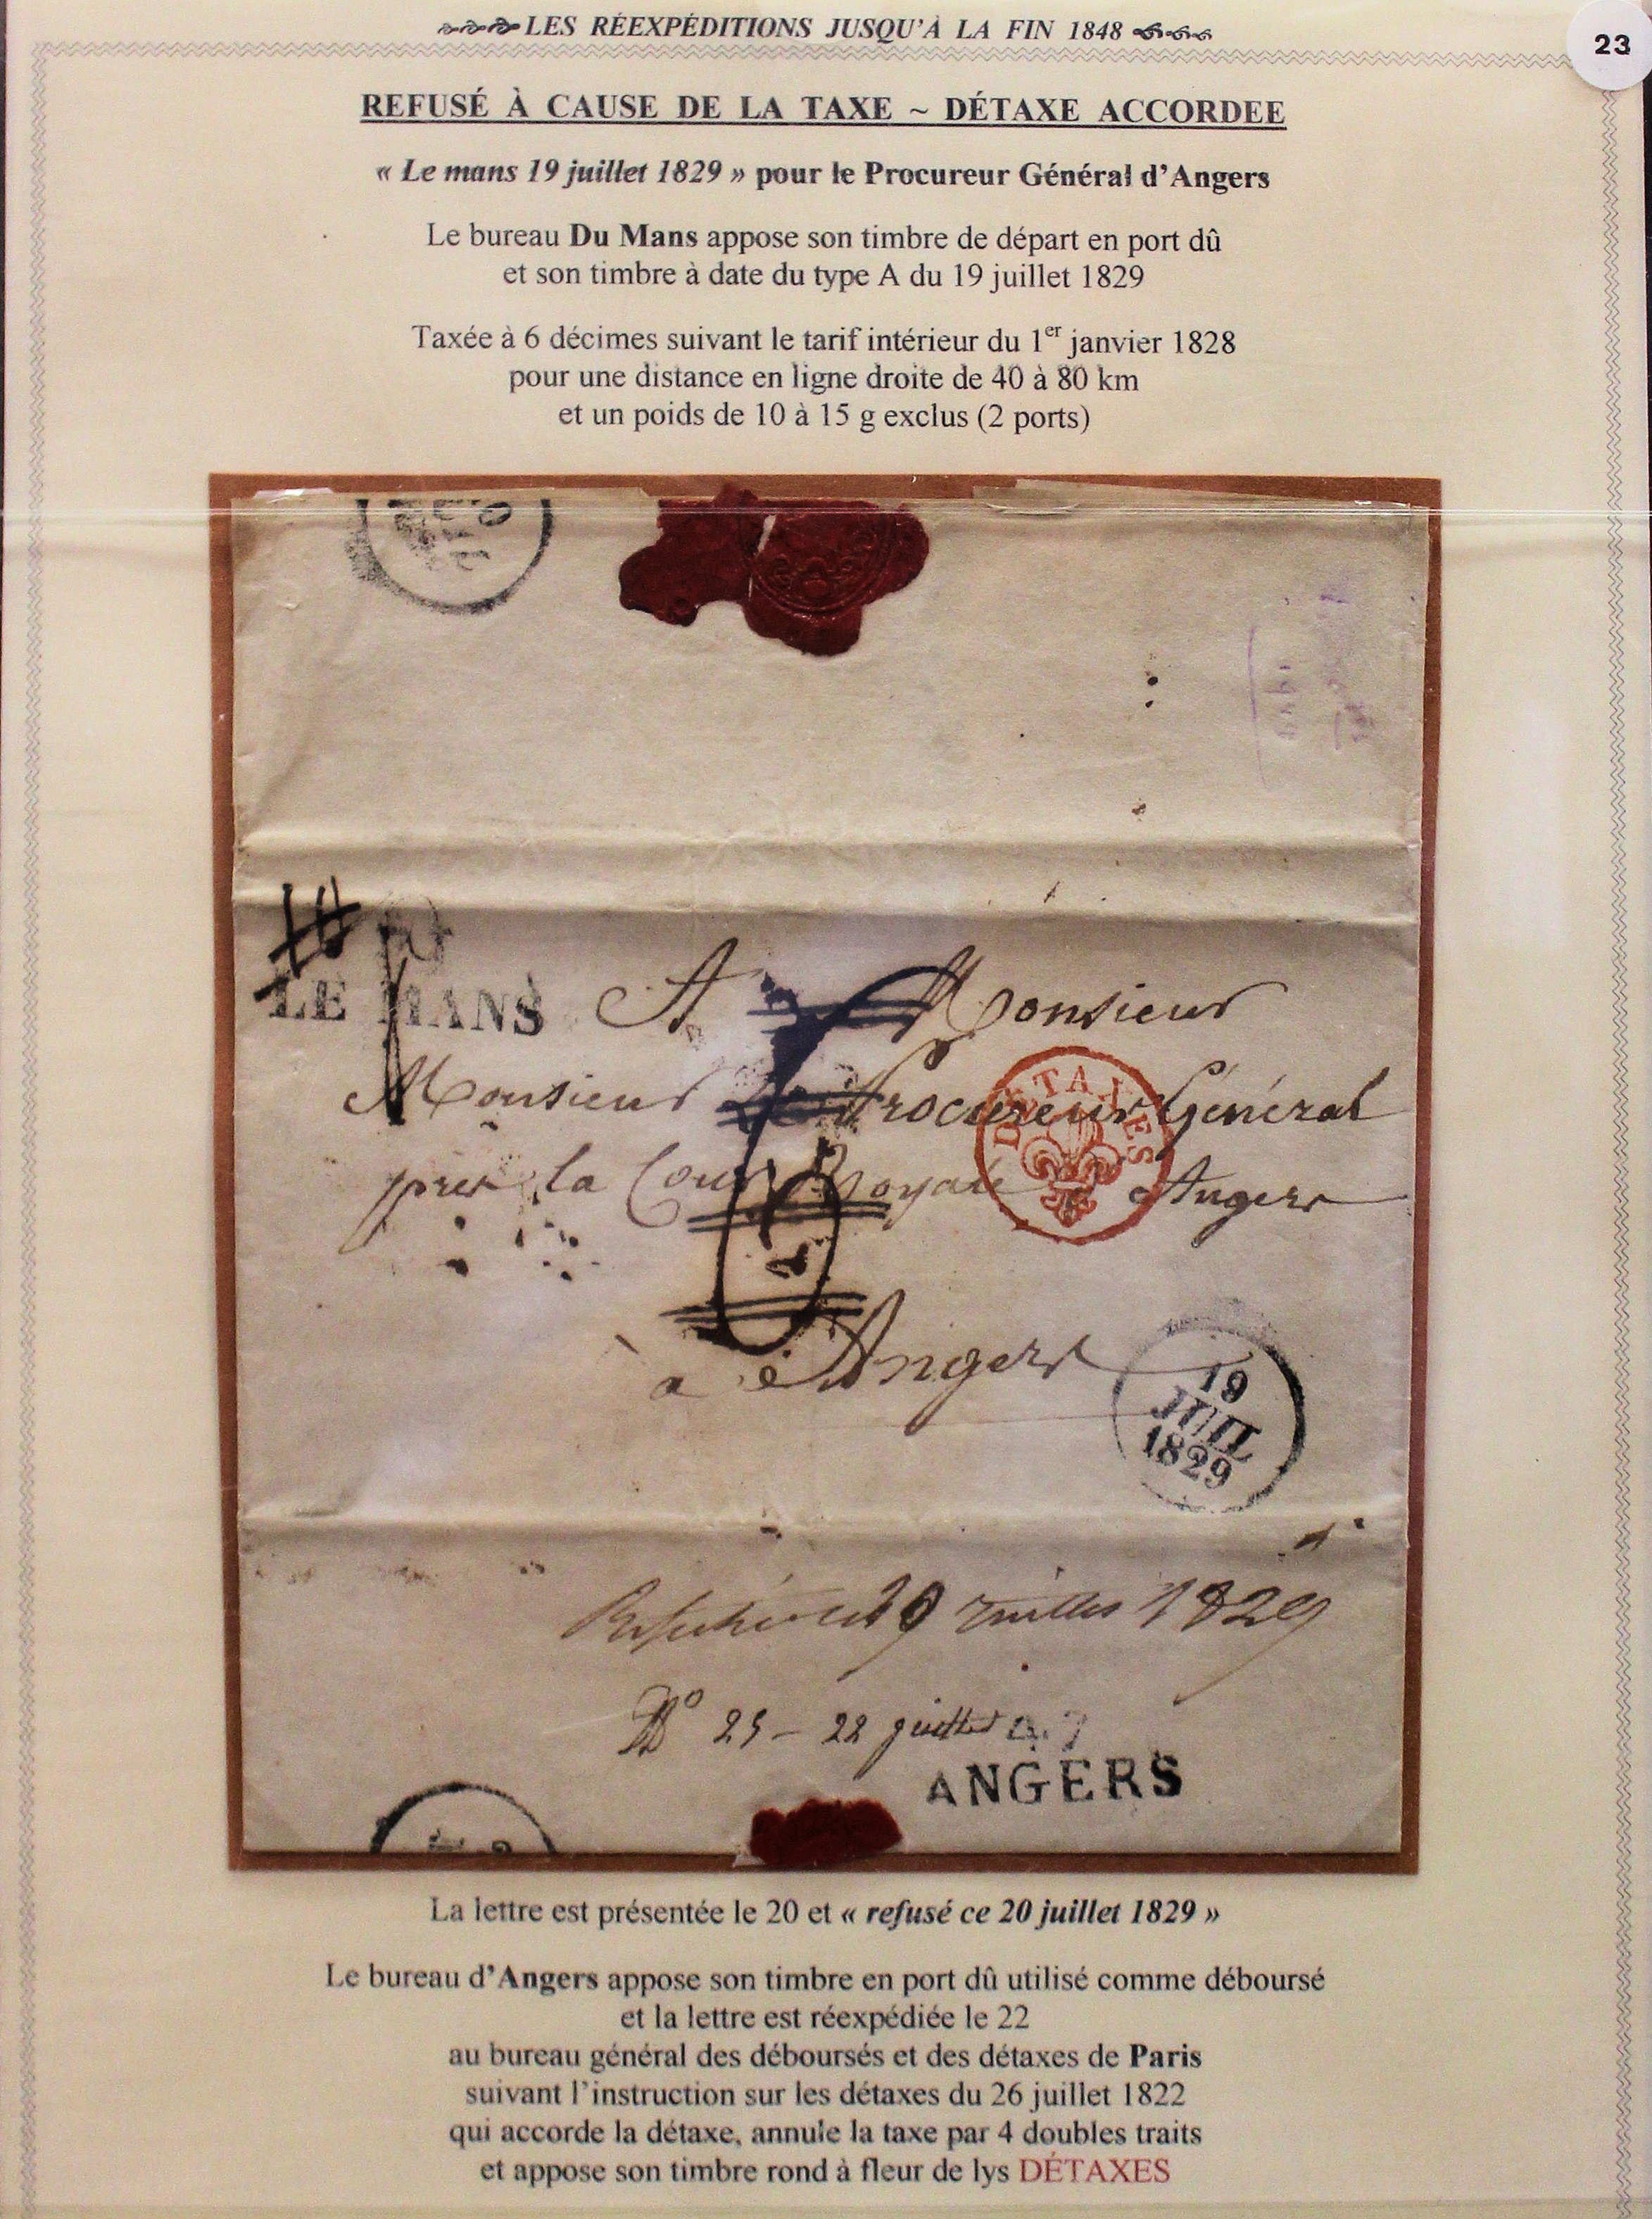 LES RÉEXPÉDITIONS JUSQU'À LA FIN 1848
23
REFUSÉ À CAUSE DE LA TAXE ~ DÉTAXE ACCORDEE
« Le mans 19 juillet 1829 » pour le Procureur Général d'Angers
Le bureau Du Mans appose son timbre de départ en port dû
et son timbre à date du type A du 19 juillet 1829
Taxée à 6 décimes suivant le tarif intérieur du 1er janvier 1828
pour une distance en ligne droite de 40 à 80 km
et un poids de 10 à 15 g exclus (2 ports)
LE MANS
A Monsieur
Monsieur Le Procureur Général
DÉTAXES
près la Cour Royale Angers
à Angers
19
JUIL
1829
juillet 1829
No 25 - 22 juillet
ANGERS
La lettre est présentée le 20 et « refusé ce 20 juillet 1829 »
Le bureau d'Angers appose son timbre en port dû utilisé comme déboursé
et la lettre est réexpédiée le 22
au bureau général des déboursés et des détaxes de Paris
suivant l'instruction sur les détaxes du 26 juillet 1822
qui accorde la détaxe, annule la taxe par 4 doubles traits
et appose son timbre rond à fleur de lys DÉTAXES